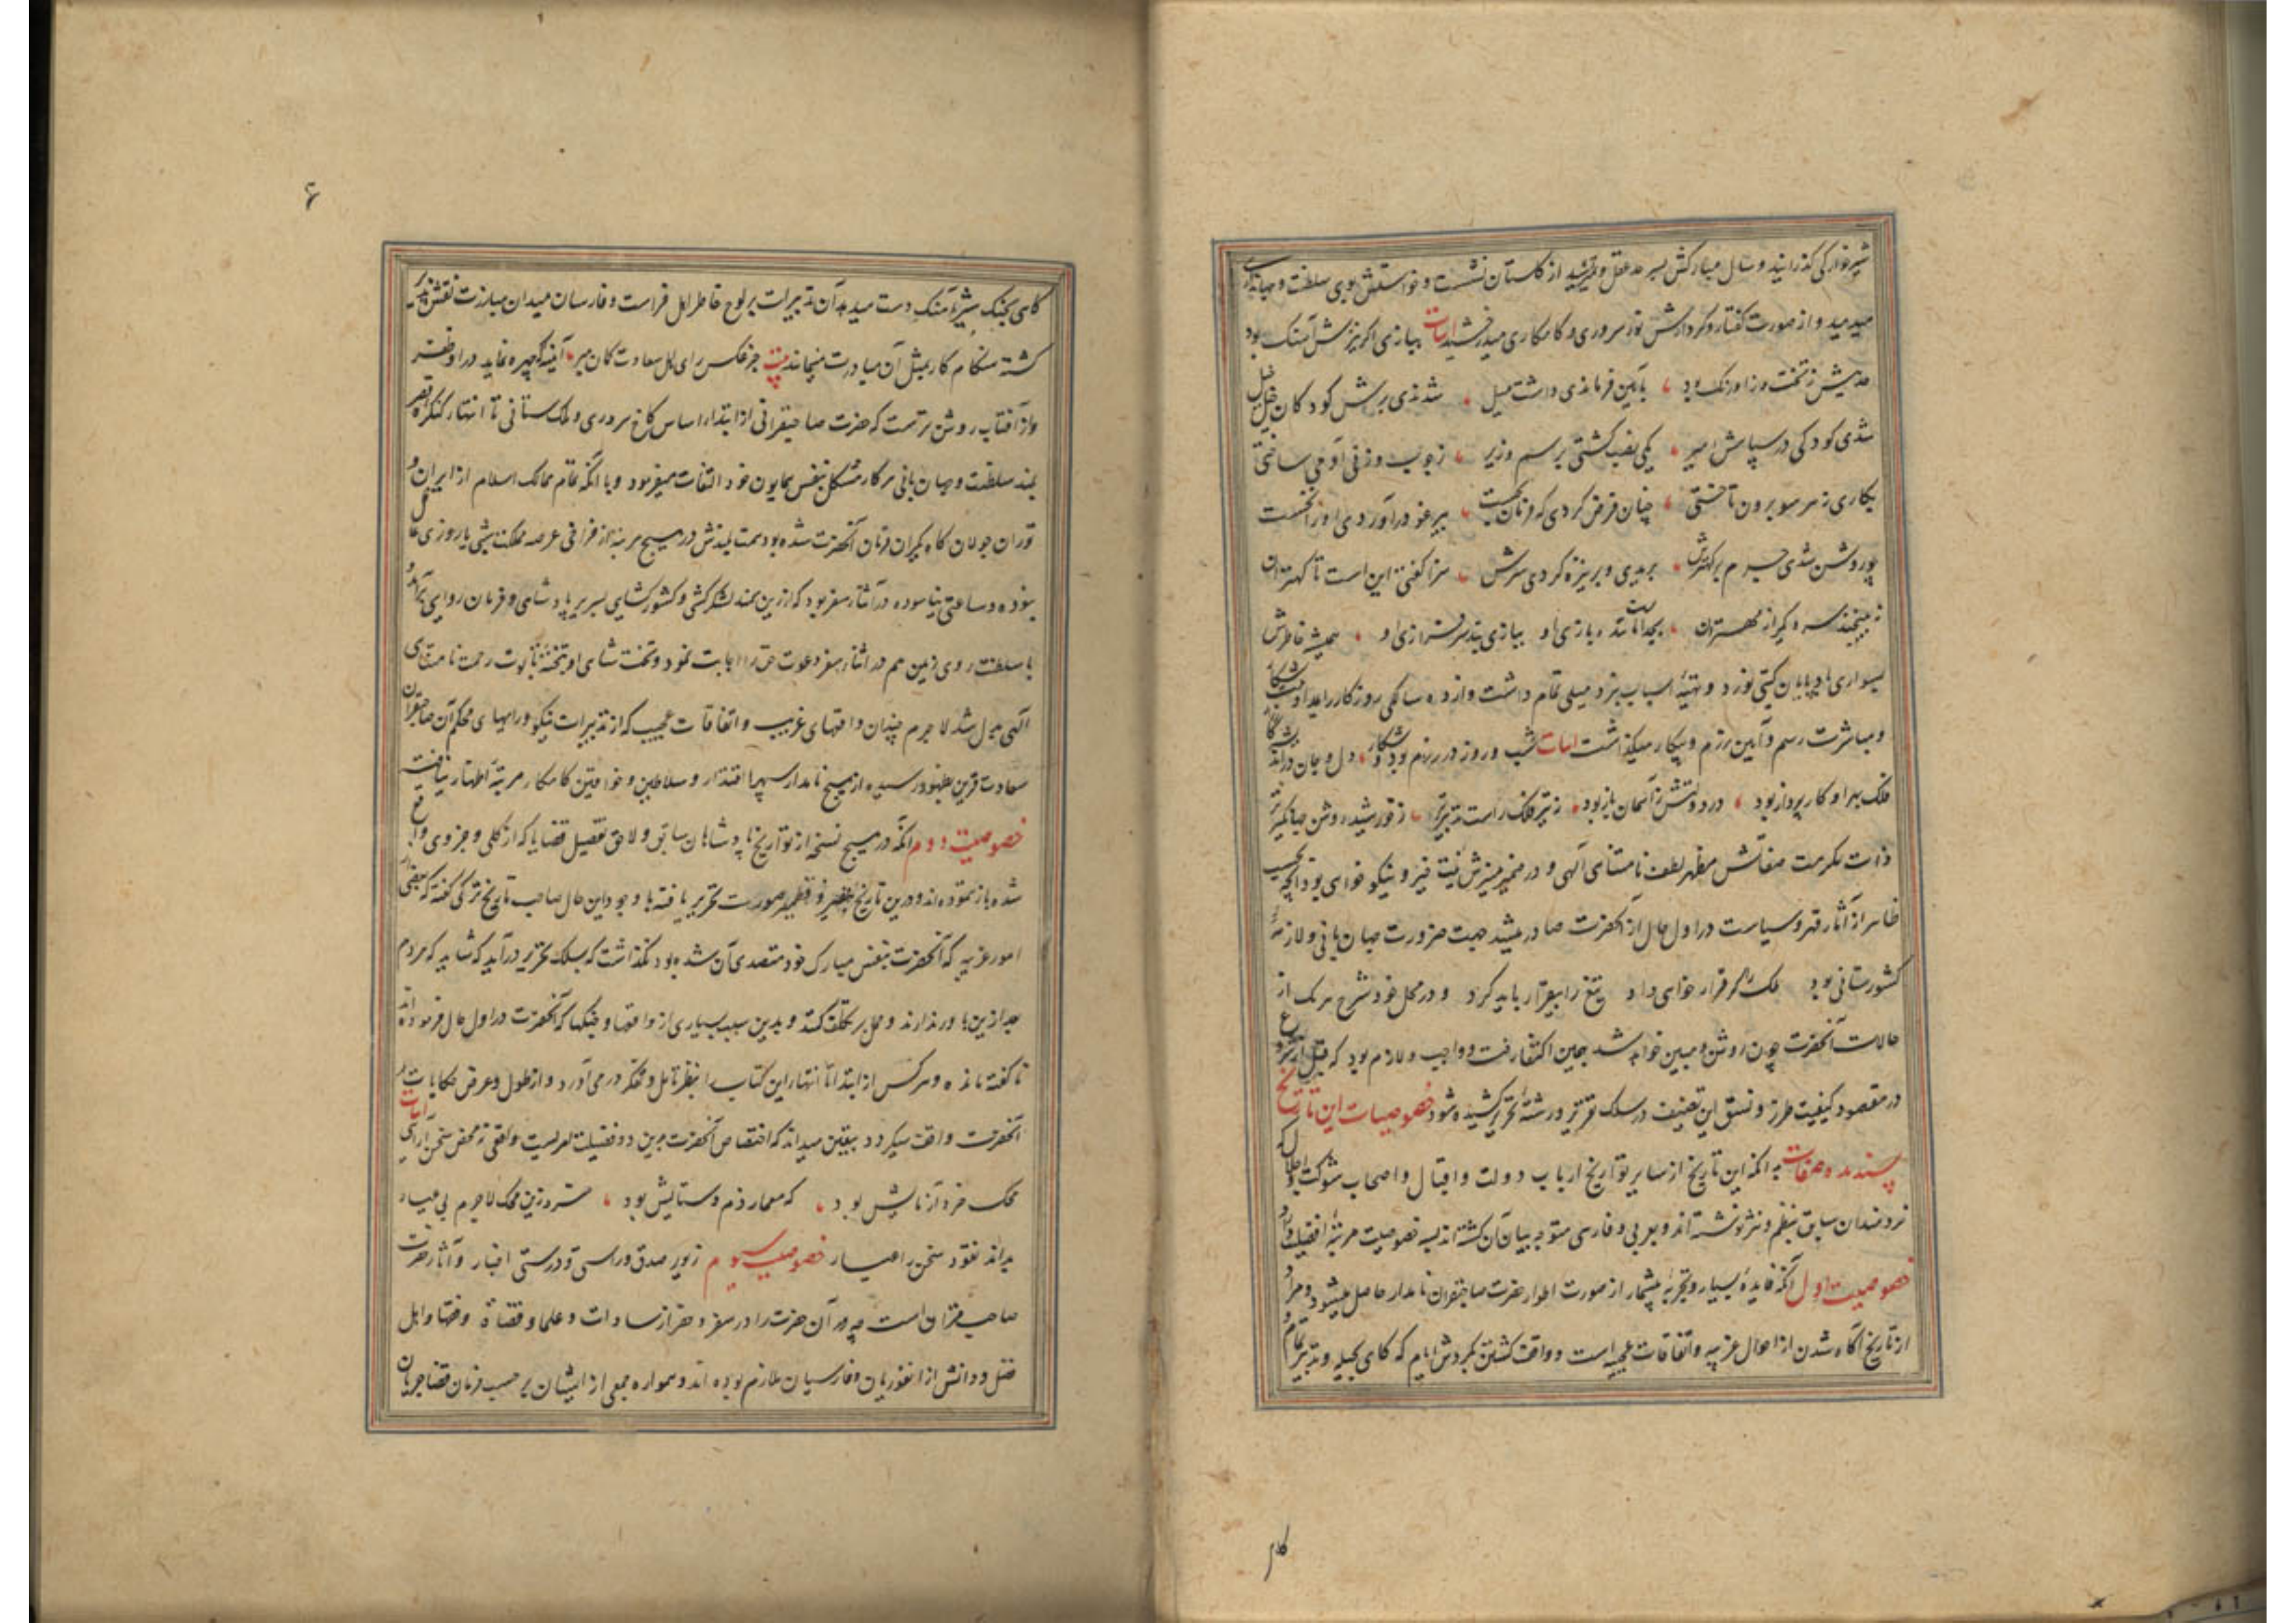 شیرخوارکی کذرانید و سال مبارکش بسر حد عقل و تمیز رسید از کلستان نشست و خواستش بوی سلطنت و جهانداری
میدمید و از صورت کفتار و کردارش نور سروری و کامکاری میدرخشید ابیات ببازی اکر نیزش آهنک بود
حدیثش ز تخت و ز اورنک بود بآیین فرماندهی داشت میل شدندی برش کودکان خیل خیل
شدی کودکی در سپاهش امیر یکی نصب کشتی برسم وزیر ز چوب و ز نی آدمی ساختی
بکاری ز هر سو برون تاختی چنان فرض کردی که فرمان نجست بیرغو درآوردی او را نخست
چو روشن شدی جرم بر کهترش بریدی و بر نیزه کردی سرش سزا کفتی این است تا کهتران
نپیچند سر دیکر از مهتران ببازی او ببازی سرفرازی او همیشه خاطرش
بسواری بادپایان کیتی نورد و تهیهٔ اسباب نبرد میلی تمام داشت و از ده سالکی روزکار را
و مباشرت رسم و آیین رزم و پیکار میکذاشت ابیات شب و روز در رزم بود و شکار دل و جان
فلک بهر او کارپرداز بود در دولتش ز آسمان باز بود ز تیر فلک راست تدبیرتر ز خورشید روشن جهانکیرتر
ذات مکرمت صفاتش مظهر لطف نامتناهی الهی و در ضمیر منیرش نیت خیر و نیکو خواهی بود آنچه بحسب
ظاهر از آثار قهر و سیاست در اول حال از آنحضرت صادر میشد جهت ضرورت جهان بانی و لازمهٔ
کشورستانی بود ملک را کر قرار خواهی داد تیغ را بیقرار باید کرد و در محل خود شرح هر یک از
حالات آنحضرت چون روشن و مبین خواهد شد بدین اکتفا رفت و واجب و لازم بود که قبل از شروع
در مقصود کیفیت طرز و نسق این تصنیف در سلک تقریر و رشتهٔ تحریر کشیده شود خصوصیات این تاریخ
پسندیده صفات بدانکه این تاریخ از سایر تواریخ ارباب دولت و اقبال و اصحاب شوکت و اجلال که
خردمندان سابق بنظم و نثر نوشته اند و بعربی و فارسی متوجه بیان آن کشته اند بسه خصوصیت مرتبهٔ افضلیت دارد
خصوصیت اول آنکه فایدهٔ بسیار و تجربهٔ بیشمار از صورت اطوار حضرت صاحبقران نامدار حاصل میشود و مراد
از تاریخ آکاه شدن از احوال غریبه و اتفاقات عجیبه است و واقف کشتن بکردش ایام که کاهی بحیله و تدبیر تمام و
کاهی
۶
کاهی بجنک شیر آهنک دست میدهد آن تدبیرات بر لوح خاطر اهل فراست و فارسان میدان مبارزت نقش پذیر
کشته هنکام کار بمثل آن مبادرت مینمایند بیت جز عکس رای اهل سعادت کمان مبر آیینهٔ که چهره نماید در او ظفر
و از آفتاب روشن ترست که حضرت صاحبقرانی از ابتداء اساس کاخ سروری و ملک ستانی تا انتهاء کنکره قصر
بلند سلطنت و جهان بانی هر کار مشکل بنفس همایون خود التفات میفرمود و با آنکه تمام ممالک اسلام از ایران و
توران جولان کاه یکران فرمان آنحضرت شده بود همت بلندش در هیچ مرتبه از فراخی عرصه مملکت شبی یا روزی غافل
نبوده و ساعتی نیاسوده و در آثناء سفر بود که از زین سمند لشکرکشی و کشورکشایی بسریر پادشاهی و فرمان روایی برآمد و
با سلطنت روی زمین هم در اثناء سفر دعوت حق را اجابت نمود و تخت شاهی او بتختهٔ تابوت رحمت نامتناهی
الهی مبدل شد لاجرم چندان واقعهای غریب و اتفاقات عجیب که از تدبیرات نیکو و رایهای محکم آن صاحبقران
سعادت قرین بظهور رسیده از هیچ نامدار سپهر اقتدار و سلاطین و خواقین کامکار مرتبهٔ اظهار نیافت
خصوصیت دوم آنکه در هیچ نسخه از تواریخ پادشاهان سابق و لاحق تفصیل قضایا که از کلی و جزوی واقع
شده باز ننموده اند و درین تاریخ نقیر و قطمیر صورت تحریر یافته با وجود این حال صاحب تاریخ ترکی کفته که بعضی از
امور غریبه که آنحضرت بنفس مبارک خود متصدی آن شده بود نکذاشت که بسلک تحریر درآید که شاید که مردم
بعد ازین باور ندارند و حمل بر تکلف کنند و بدین سبب بسیاری از واقعها و جنکها که آنحضرت در اول حال فرموده اند
ناکفته مانده و هر کس از ابتدا تا انتهاء این کتاب را بنظر تامل و تفکر در می آورد و از طول و عرض حکایات
آنحضرت واقف میکردد بیقین میداند که اختصاص آنحضرت بدین دو فضیلت امریست واقعی نه محض سخن آرائی ابیات
محک خرد آزمایش بود که معیار ذم و ستایش بود خرد زین محک لاجرم بی عیار
بداند نقود سخن را عیار خصوصیت سیوم زیور صدق و راستی و درستی اخبار و آثار حضرت
صاحبقران است چه در آن حضرت را در سفر و حضر از سادات و علما و قضاة و فقها و اهل
فضل و دانش از ایغوریان و فارسیان ملازم بوده اند و همواره جمعی از ایشان بر حسب فرمان قضا جریان